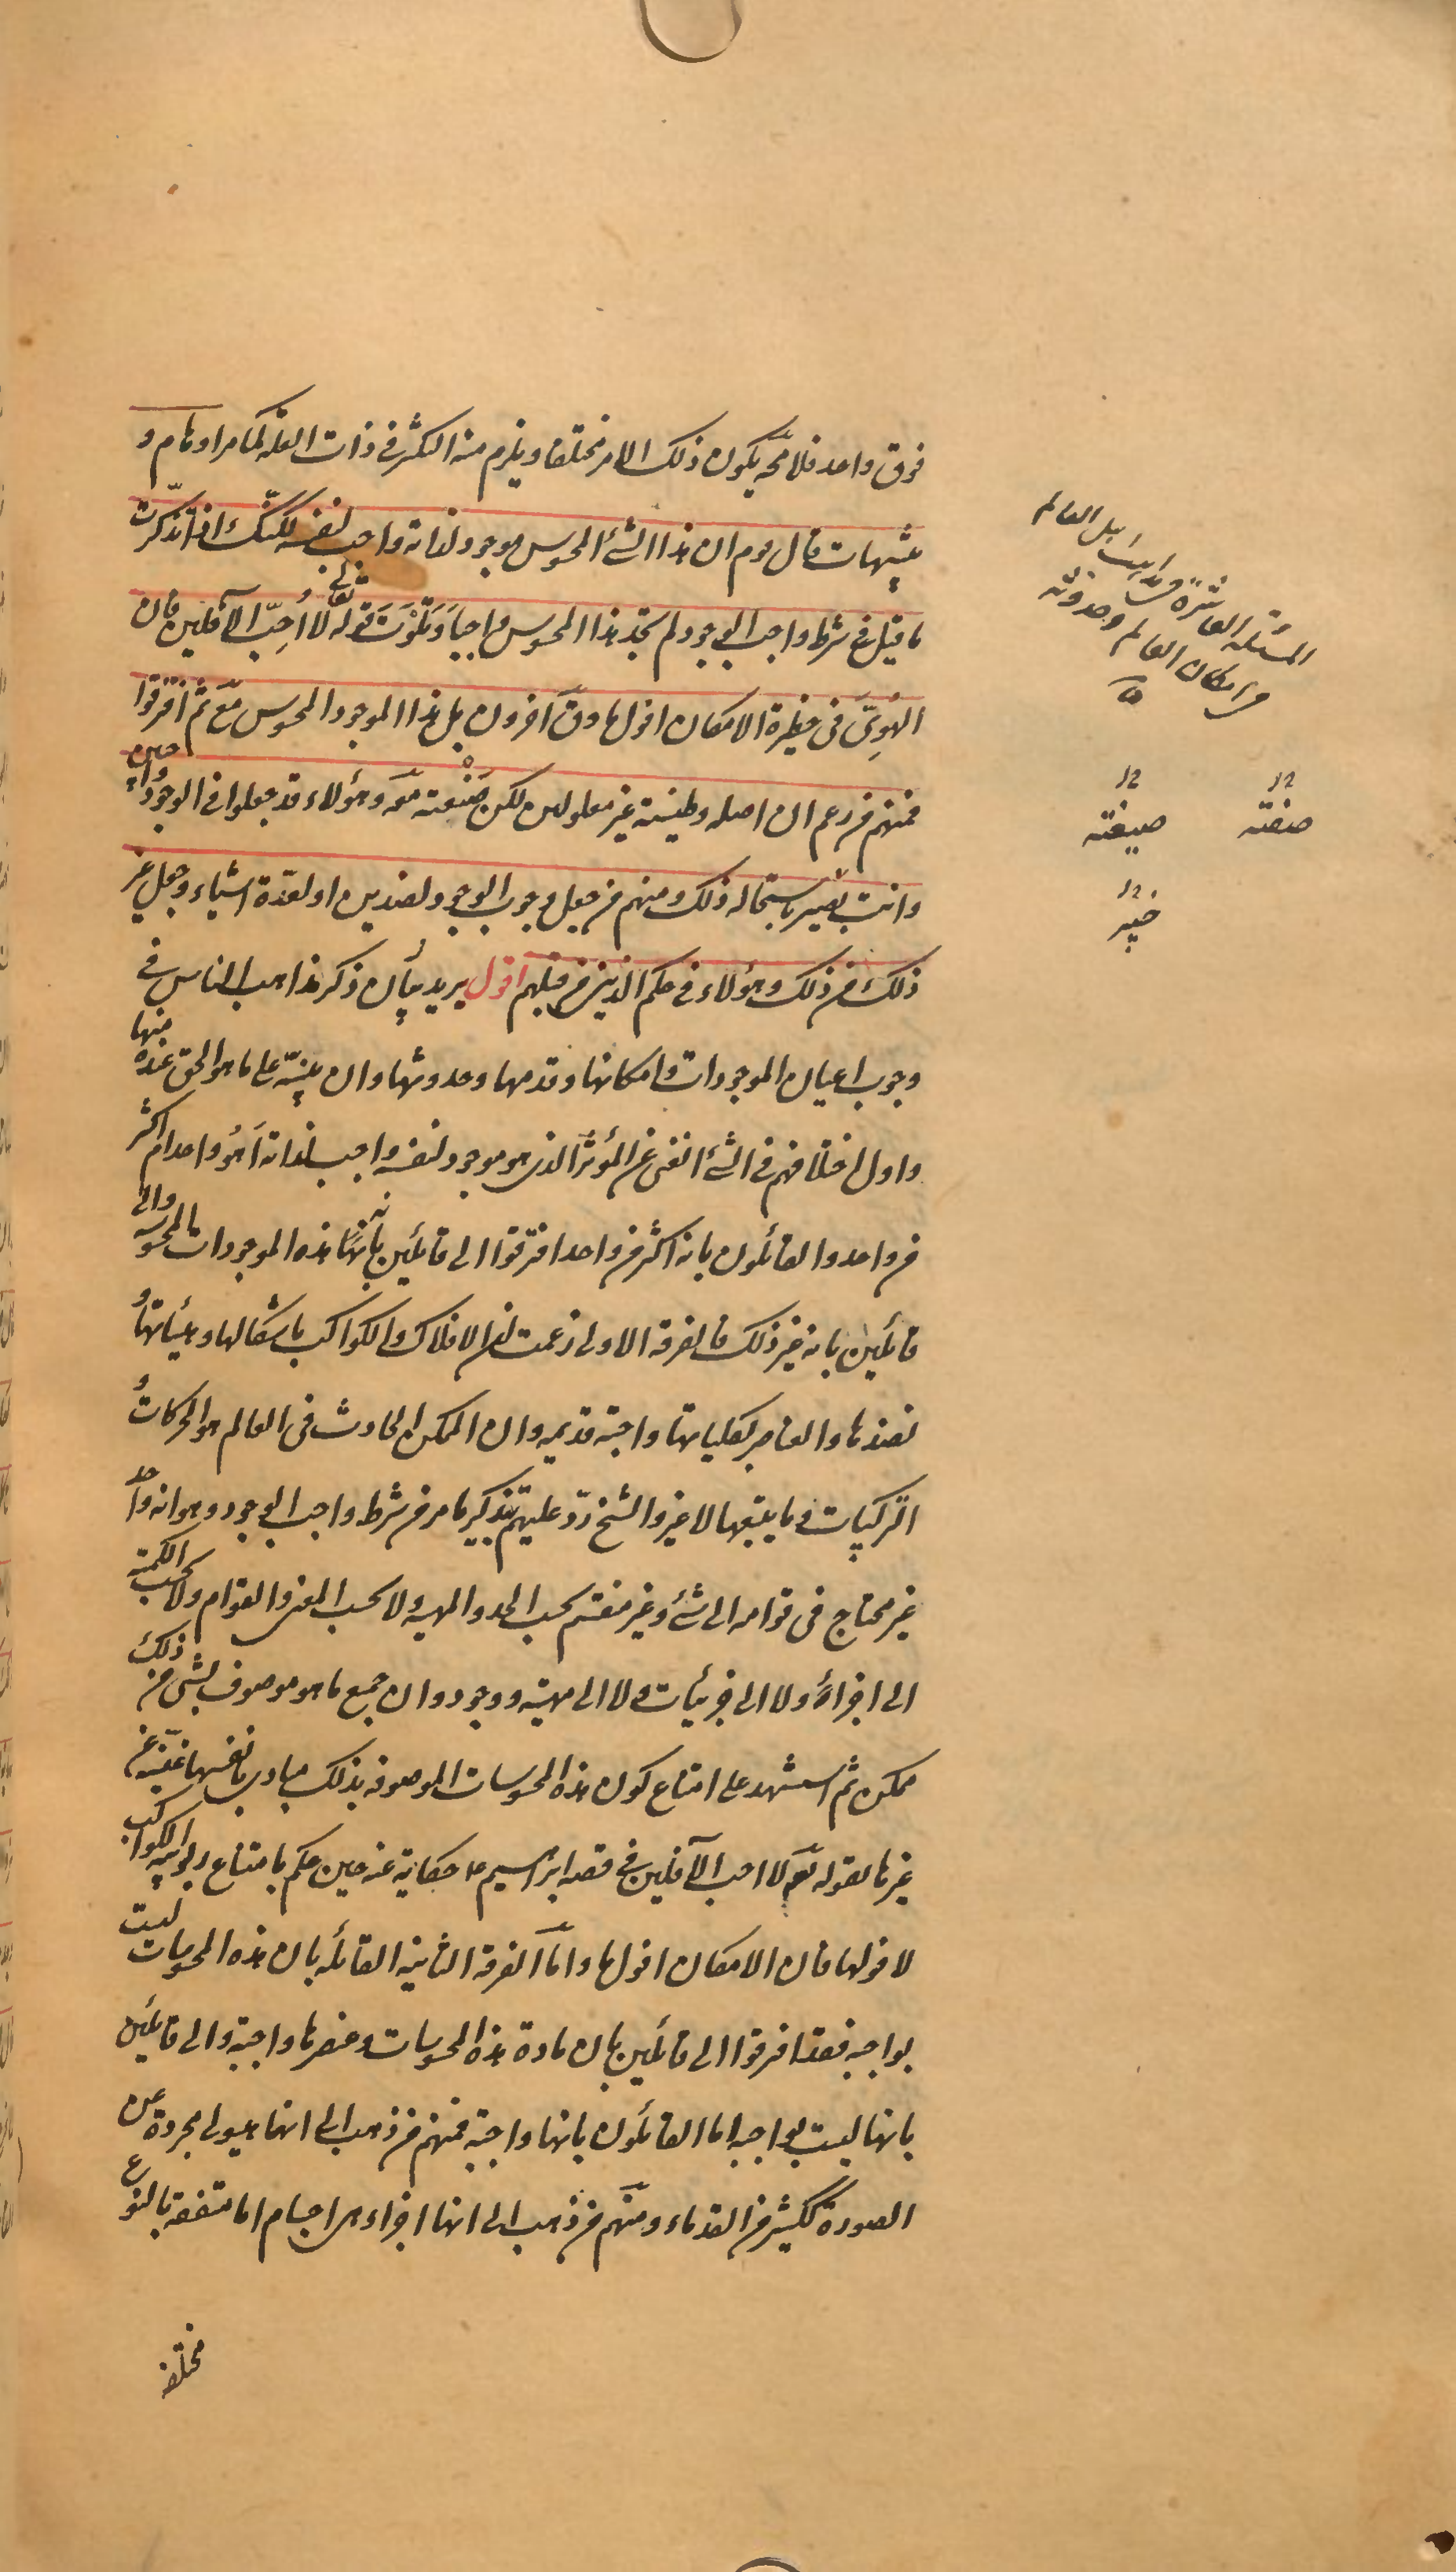 فوق واحد فلا محة يكون ذلك الامر مختلفا ويلزم منه التكثر فى ذات العلة كما مر اوهام و
تنبيهات قال قوم ان هذا الشئ المحسوس موجود لذاته واجب لنفسه لكنك اذا تذكرت
ما قيل فى شرط واجب الوجود لم تجد هذا المحسوس واجبا وتلوت قوله تعالى لا اُحِبّ الآفلين فان
الهُوِىَّ فى حظيرة الامكان افول ما وقال آخرون بل هذا الموجود المحسوس مع ثم افترقوا
فمنهم من زعم ان اصله وطينته غير معلولين لكن صَنْعته معه وهؤلاء قد جعلوا فى الوجود واجبين
وانت بصير باستحالة ذلك ومنهم من جعل وجوب الوجود لضدين او لعدّة اشياء وجعل غير
ذلك من ذلك وهؤلاء فى حكم الذين من قبلهم اقول يريد بيان ذكر مذاهب الناس فى
وجوب اعيان الموجودات وامكانها وقدمها وحدوثها وان ينبّه على ما هو الحق عنده منها
واول اختلافهم فى الشئ الغنى عن المؤثر الذى هو موجود لنفسه واجب لذاته اَهُو واحد ام اكثر
من واحد والقائلون بانه اكثر من واحد افترقوا الى قائلين بانه هذه الموجودات المحسوسة والى
قائلين بانه غير ذلك فالفرقة الاولى زعمت ان الافلاك والكواكب باشكالها وهيأتها و
نضدها والعناصر بكلياتها واجبة قديمه وان الممكن الحادث فى العالم هو الحركات و
التركيبات وما يتبعها لا غير والشيخ ردّ عليهم بتذكير ما مر من شرط واجب الوجود وهو انه واحد
غير محتاج فى قوامه الى شئ وغير منقسم بحسب الحد والمهية ولا بحسب المعنى والقوام ولا بحسب الكمية
الى اجزاء ولا الى جزئيات ولا الى مهية ووجود وان جميع ما هو موصوف بشئ من ذلك
ممكن ثم استشهد على امتناع كون هذه المحسوسات الموصوفة بذلك مبادى بانفسها غنيّة عن
غيرها بقوله تعم لا احب الآفلين فى قصه ابراهيم ع حكاية عنه حين حكم بامتناع ربوبية الكواكب
لافولها فان الامكان افول ما وامّا الفرقة الثانية القائله بان هذه المحسوسات ليست
بواجبه فقد افترقوا الى قائلين بان مادة هذه المحسوسات وعنصرها واجبة والى قائلين
بانها ليست بواجبه اما القائلون بانها واجبة فمنهم من ذهب الى انها هيولى مجردة عن
الصورة ككثير من القدماء ومنهم من ذهب الى انها اجزاء هى اجسام اما متفقه بالنوع
مختلفة
المسئله العاشرة مذاهب اهل العالم
فى امكان العالم وحدوثه
صنعته
صيغته
خبير